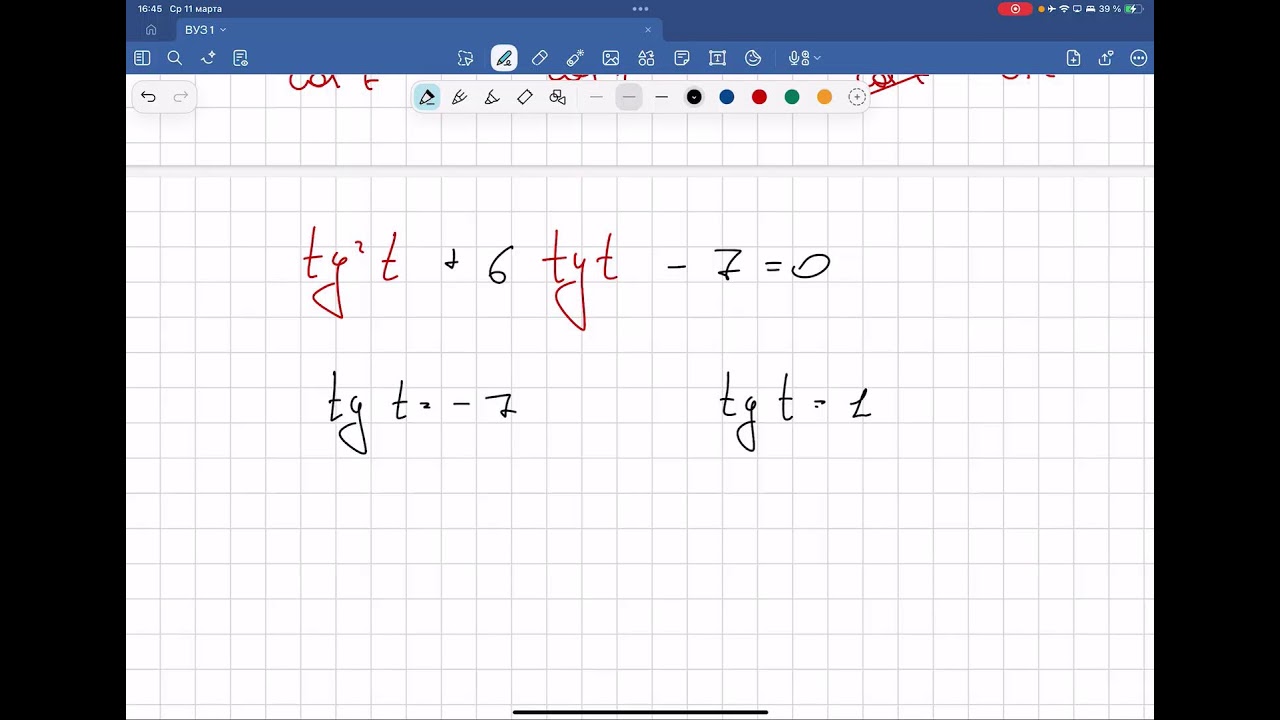 16:45 Ср 11 марта
39 %
ВУЗ 1
tg² t + 6 tg t - 7 = 0
tg t = - 7 tg t = 1